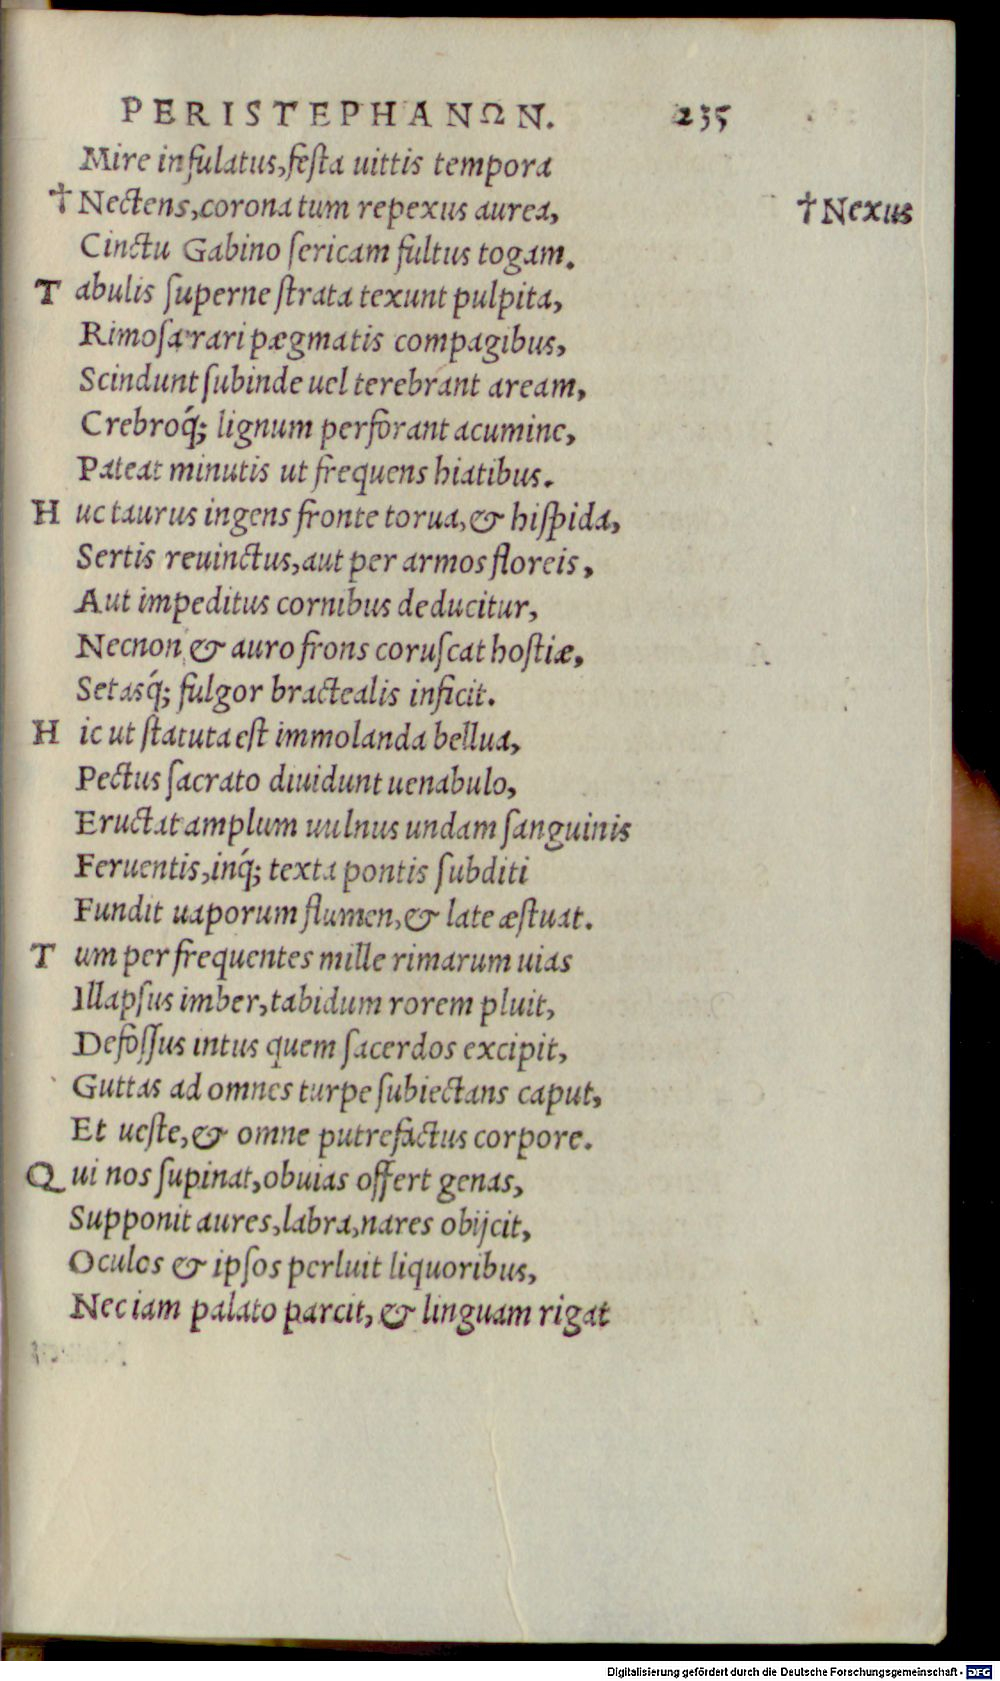 PERISTEPHANΩN. 235
Mire infulatus, festa uittis tempora
†Nectens, corona tum repexus aurea, †Nexus
Cinctu Gabino sericam fultus togam.
T abulis superne strata texunt pulpita,
Rimosa rari pægmatis compagibus,
Scindunt subinde uel terebrant aream,
Crebroq́; lignum perforant acumine,
Pateat minutis ut frequens hiatibus.
H uc taurus ingens fronte torua, & hispida,
Sertis reuinctus, aut per armos floreis,
Aut impeditus cornibus deducitur,
Necnon & auro frons coruscat hostiæ,
Setasq́; fulgor bractealis inficit.
H ic ut statuta est immolanda bellua,
Pectus sacrato diuidunt uenabulo,
Eructat amplum uulnus undam sanguinis
Feruentis, inq́; texta pontis subditi
Fundit uaporum flumen, & late æstuat.
T um per frequentes mille rimarum uias
Illapsus imber, tabidum rorem pluit,
Defossus intus quem sacerdos excipit,
Guttas ad omnes turpe subiectans caput,
Et ueste, & omne putrefactus corpore.
Q ui nos supinat, obuias offert genas,
Supponit aures, labra, nares obijcit,
Oculos & ipsos perluit liquoribus,
Nec iam palato parcit, & linguam rigat
Digitalisierung gefördert durch die Deutsche Forschungsgemeinschaft - DFG